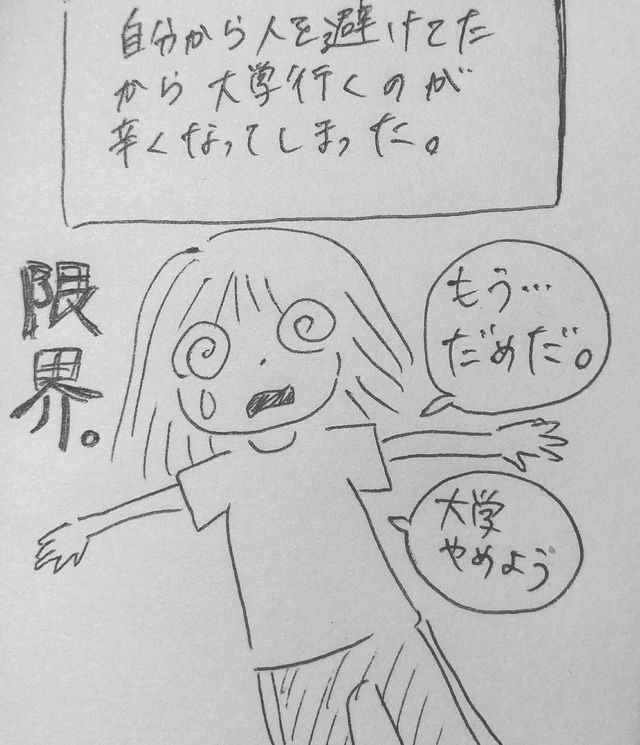 自分から人を避けてた
から大学行くのが
辛くなってしまった。
もう…
だめだ。
限
界。
大学
やめよう